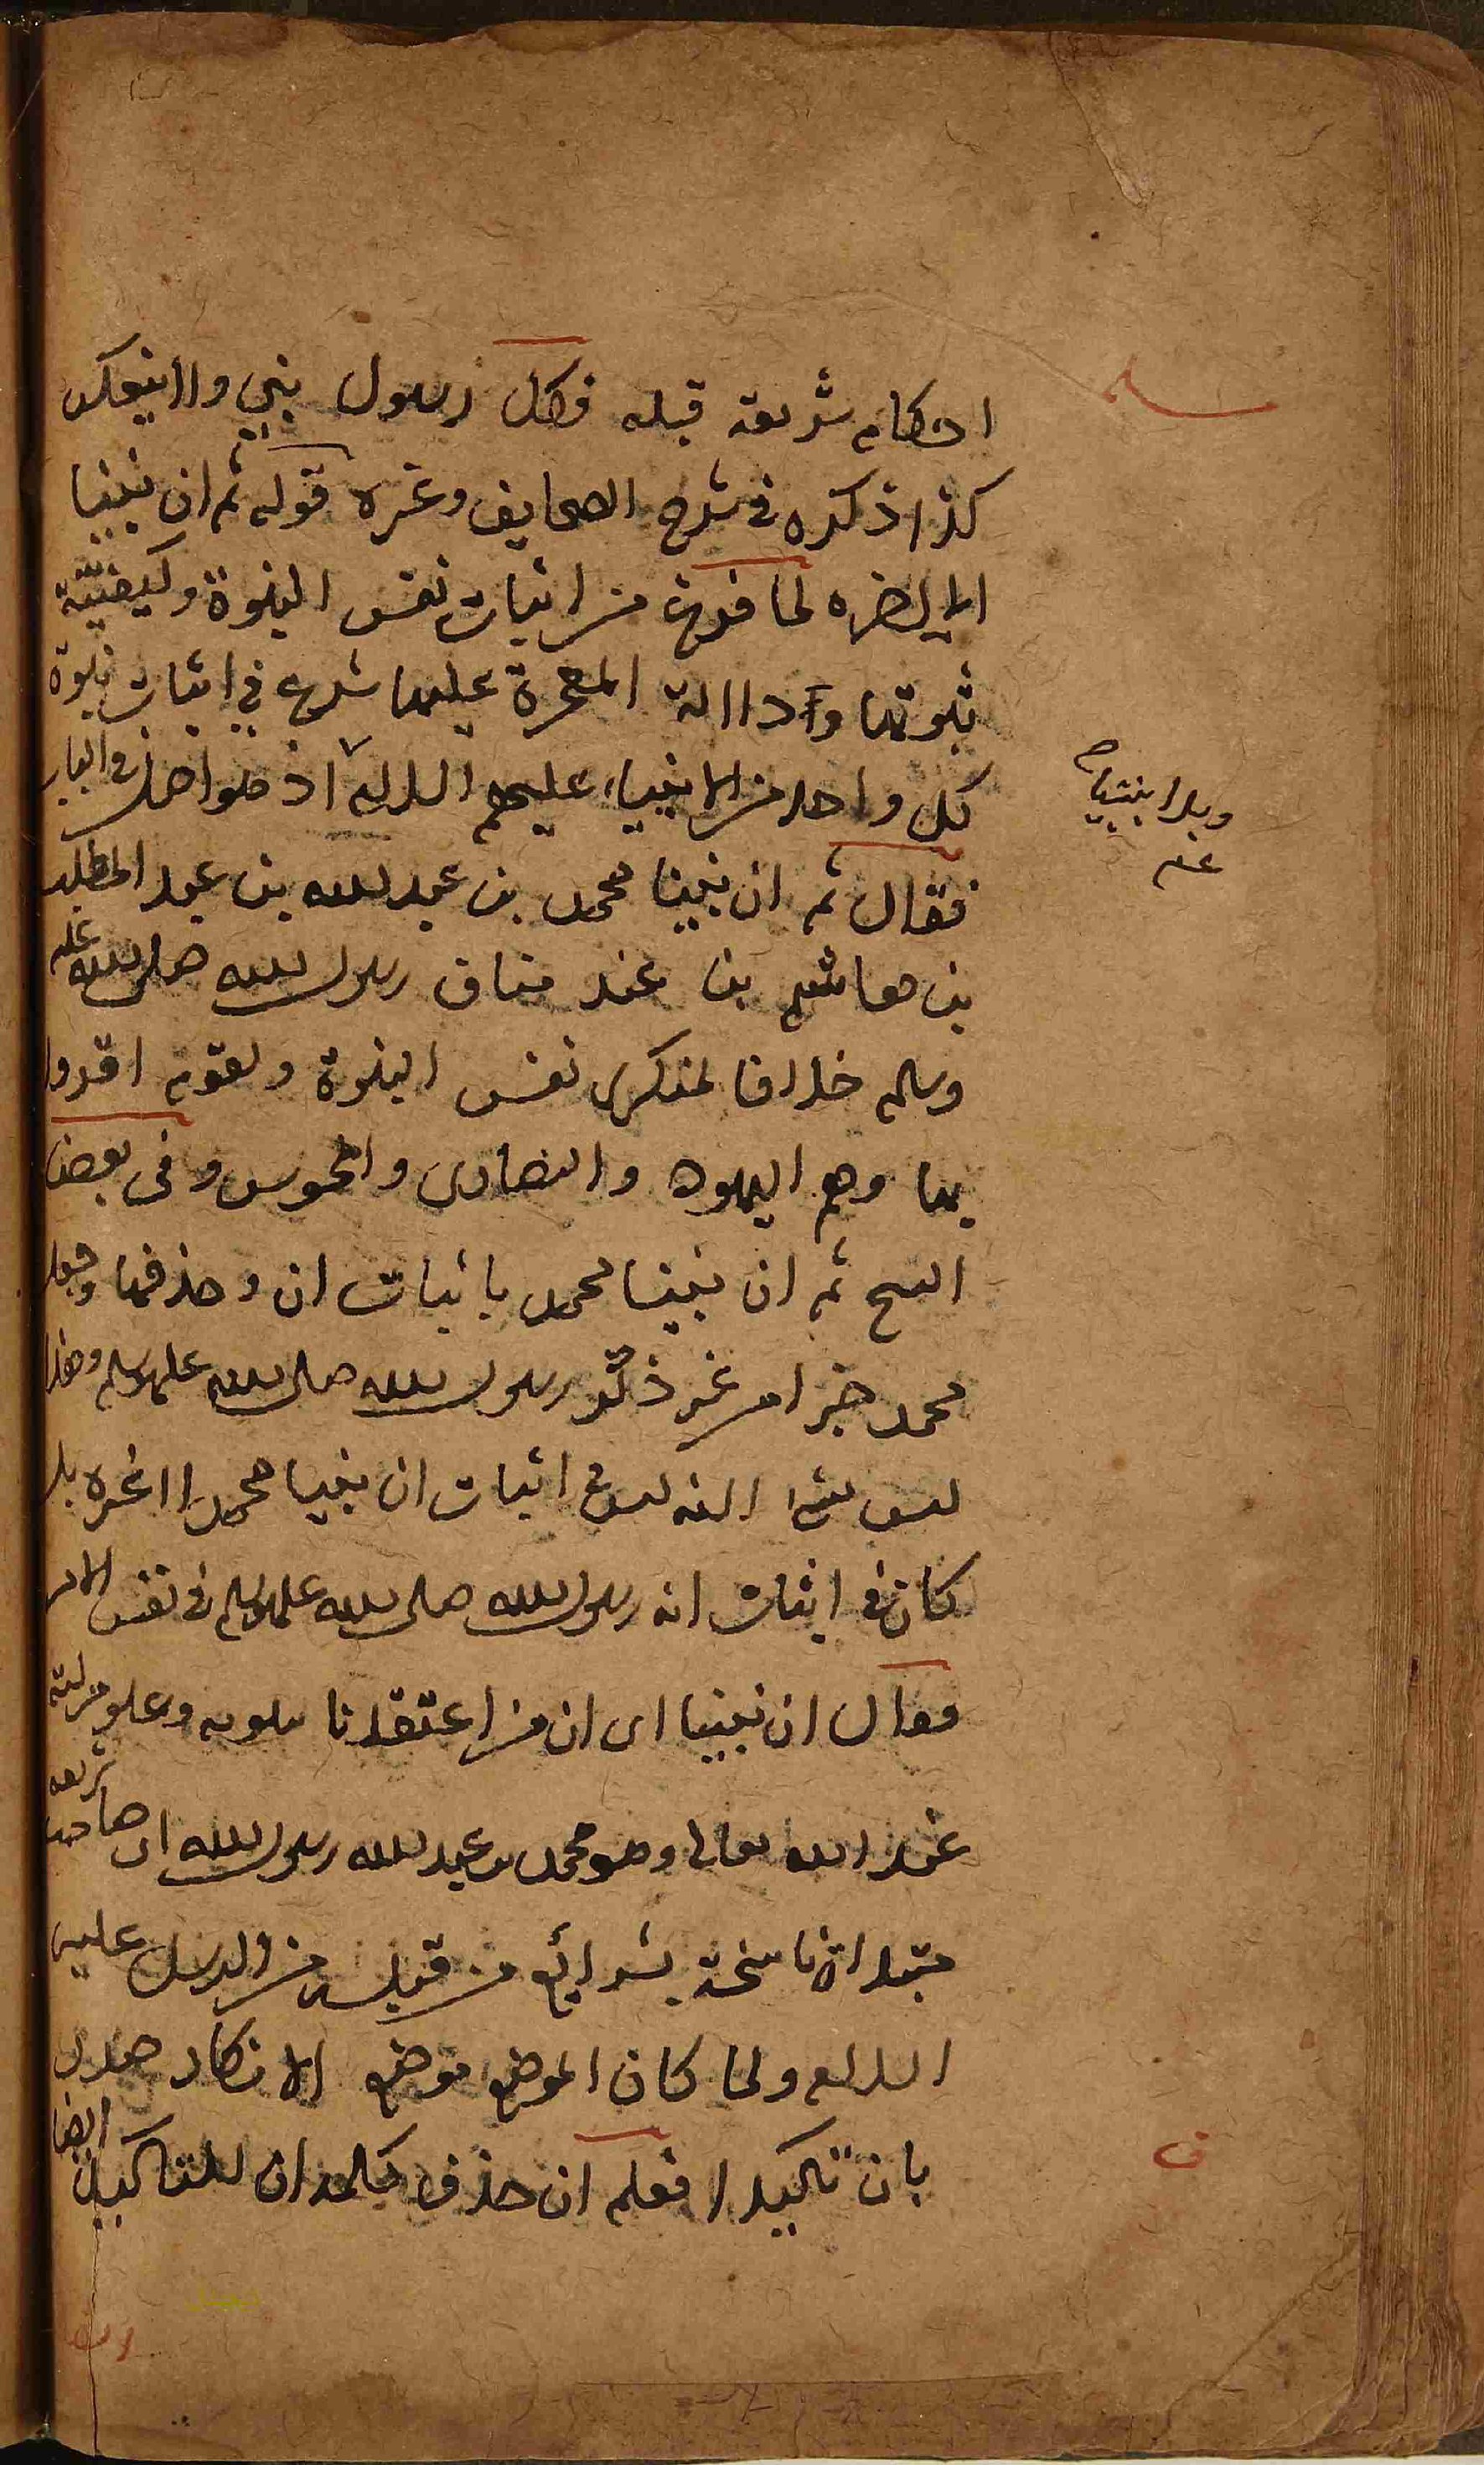 احكام شريعة قبله فكل رسول نبي ولا ينعكس
كذا ذكره في شرح الصحايف وغيره قوله ثم ان نبينا
الى اخره لما فرغ من اثبات نفس النبوة وكيفية
ثبوتها ودلالة المعجزة عليها شرع في اثبات نبوة
كل واحد من الانبياء عليهم السلام اذ هو اصل في الباب
فقال ثم ان نبينا محمد بن عبد الله بن عبد المطلب
بن هاشم بن عبد مناف رسول الله صلى الله عليه
وسلم خلافا لمنكرى نفس النبوة ولقوم اقروا
بها وهم اليهود والنصارى والمجوس وفى بعض
النسخ ثم ان نبينا محمد باثبات ان وحذفها وجعل
محمد خبرا من غير ذكر رسول الله صلى الله عليه وسلم وهذا
ليس بشئ لانه ليس في اثبات ان نبينا محمد لا غيره بل
كان في اثبات انه رسول الله صلى الله عليه وسلم في نفس الامر
وقال ان نبينا اى ان من اعتقدنا بنبوته وعلو منزلته
عند الله تعالى وهو محمد بن عبد الله رسول الله اى صاحب شريعة
مبتداة ناسخة بشرائع من قبله من الرسل عليهم
السلام ولما كان الموضع موضع الانكار صدر
بان تاكيدا فعلم ان حذف كلمة ان للتاكيد ايضا